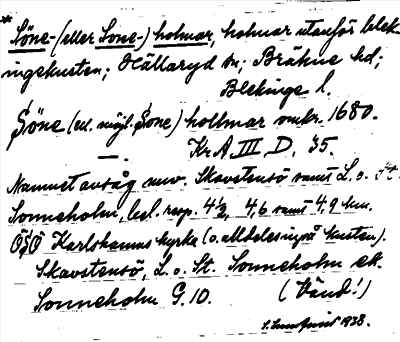 *Söne- (eller Sone-) holmar, holmar utanför blek-
ingekusten; Hällaryd sn; Bräkne hd;
Blekinge l.
Söne (el. möjl. Sone) hollmar omkr. 1680.
Kr A III D, 35.
Namnet avsåg nuv. Skavstensö samt L. o. St.
Sonneholm, bel. resp. 4½, 4,6 samt 4,9 km.
ÖSÖ Karlshamns kyrka (o. alldeles inpå kusten).
Skavstensö, L. o. St. Sonneholm ek.
Sonneholm G. 10. (Vänd!)
1938.